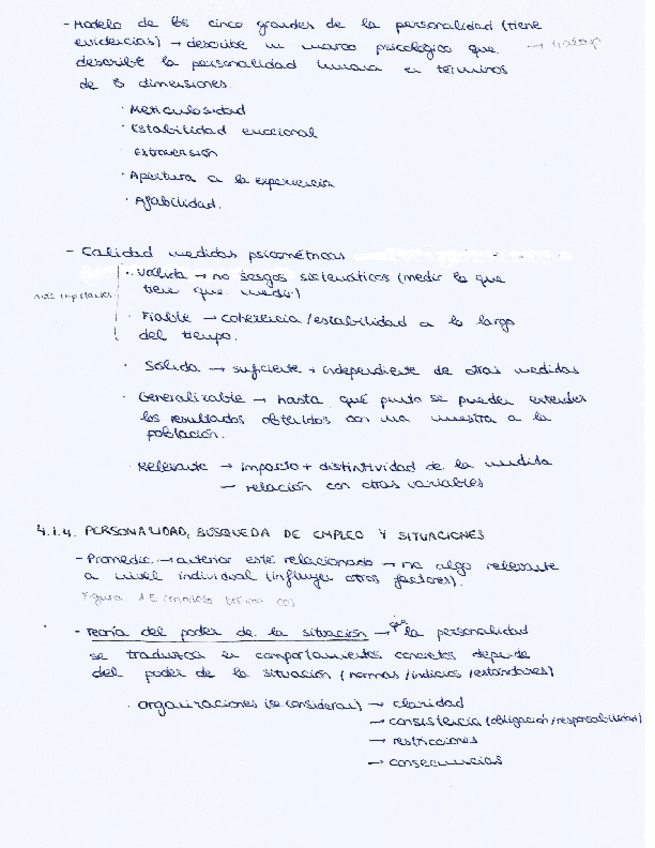 - Modelo de los cinco grandes de la personalidad (tiene
evidencias) → describe un marco psicológico que
describe la personalidad humana en términos
de 5 dimensiones.
· Meticulosidad
· Estabilidad emocional
· Extraversión
· Apertura a la experiencia
· Afabilidad.
- Calidad medidas psicométricas
· Válida → no sesgos sistemáticos (medir lo que
tiene que medir)
más importantes
· Fiable → coherencia/estabilidad a lo largo
del tiempo.
· Sólida → suficiente + independiente de otras medidas
· Generalizable → hasta qué punto se pueden extender
los resultados obtenidos con una muestra a la
población.
· Relevante → impacto + distintividad de la medida
→ relación con otras variables
4.1.4. PERSONALIDAD, BÚSQUEDA DE EMPLEO Y SITUACIONES
- Promedio → anterior esté relacionado → no algo relevante
a nivel individual (influyen otros factores).
Figura
- Teoría del poder de la situación → que la personalidad
se traduzca en comportamientos concretos depende
del poder de la situación (normas/indicios/estándares)
· Organizaciones (se consideran) → claridad
→ consistencia (obligación/responsabilidad)
→ restricciones
→ consecuencias